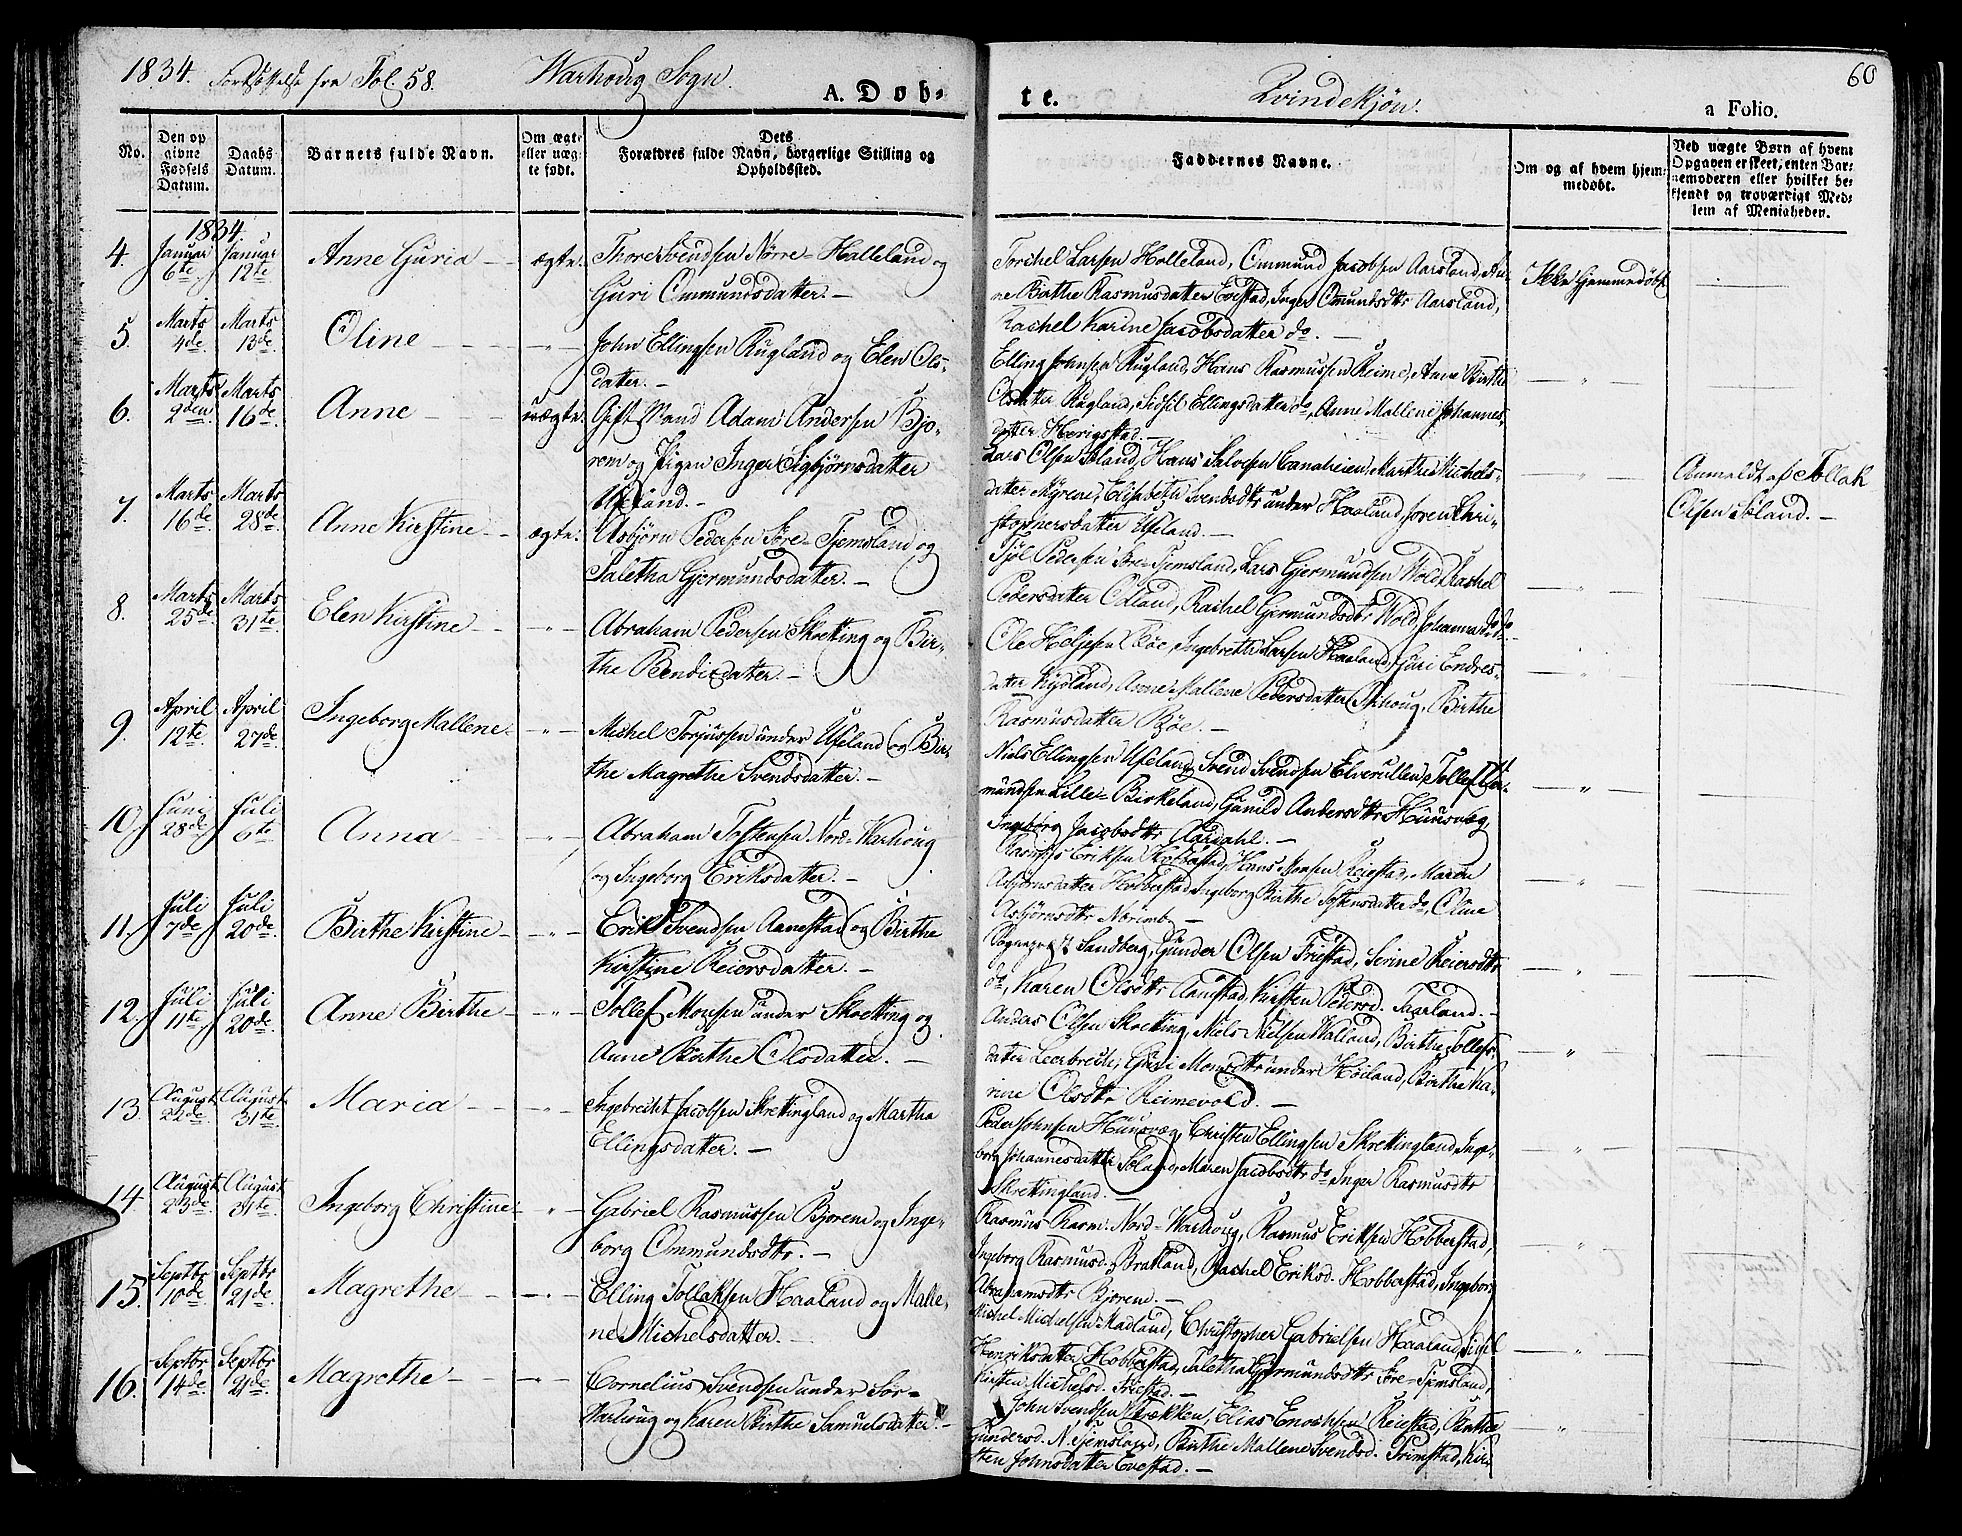 1834. Fortsættelse fra Fol. 58. Warhoug Sogn. A. Døb-
te. Qvindekjøn. a Folio. 60
No.
Den opgivne Fødsels Datum.
Daabs Datum.
Barnets fulde Navn.
Om ægte eller uægte født.
Dets Forældres fulde Navn, borgerlige Stilling og Opholdssted.
Faddernes Navne.
Om og af hvem hjemmedøbt.
Ved uægte Børn af hvem Opgaven er skeet, enten Barnemoderen eller hvilket bekjendt og troværdigt Medlem af Menigheden.
1834
4. Januar 6te. Januar 12te. Anne Guria ægte. Thore Svendsen Nørre-Halleland og
Guri Ommundsdatter.
Torchel Larsen Holleland, Ommund Jacobsen Aarsland, An-
ne Birthe Rasmusdatter Evestad, Inger Omundsdtr Aarsland,
Rachel Karine Jacobsdatter do.
Ikke hjemmedøbt
5. Marts 4de. Marts 13de. Oline — " — John Ellingsen Rugland og Elen Ols-
datter.
Elling Johnsen Rugland, Hans Rasmussen Reime, Anne Birthe
Olsdatter Rugland, Sidsil Ellingsdatter do, Anne Mallene Johannes-
datter Hærigstad.
— " —
6. Marts 9den Marts 16de. Anne uægte. Gift Mand Adam Andersen Bjo-
rem og Pigen Inger Sigbjørnsdatter
Ufsland.
Lars Olsen Søland, Hans Salvesen Marthe Michels-
datter Myrene, Elisabeth Svendsdtr under Haaland, Soren Chri-
stophersdatter Ufsland.
— " —
Anmeldt af Tollak
Olsen Søland.
7. Marts 16de Marts 28de. Anne Kirstine ægte. Asbjørn Pedersen Søre-Tjemsland og
Taletha Gjermundsdatter.
Pedersen Søre-Tjemsland, Lars Gjermundsen Wold, Rachel
Pedersdatter Odland, Rachel Gjermundsdtr Wold, Johanna do do
— " —
8. Marts 25de Marts 31te. Elen Kirstine — " — Abraham Pedersen Skretting og Bir-
the Bendixdatter.
Ole Helgesen Bøe, Ingebreth Larsen Haaland, Guri Endres-
datter Rysland, Anne Mallene Pedersdatter Birthe
Rasmusdatter Bøe.
— " —
9. April 12te. April 27de. Ingeborg Mallene. — " — Michel Torjussen under Ufsland og Bir-
the Magrethe Svendsdatter.
Niels Ellingsen Ufsland, Svend Svendsen Tollef
mundsen Lille-Birkeland, Gunild Andersdtr Huusvæg
Ingeborg Jacobsdtr Aardahl.
— " —
10. Juni 28de. Juli 6te Anna — " — Abraham Tostensen Nord-Warhoug
og Ingeborg Eriksdatter.
Rasmus Eriksen Hobberstad, Hans Monsen Reiestad, Maren
Asbjørnsdatter Hobberstad, Ingeborg Birthe Tostensdatter do, Oline
Asbjørnsdtr
— " —
11. Juli 7de. Juli 20de. Birthe Kirstine — " — Erik Svendsen Aanestad og Birthe
Kirstine Reiersdatter.
Sogneprest Sandberg, Gunder Olsen Friestad, Serine Reiersdtr
do, Karen Olsdtr Aanestad, Kirsten Pedersd. Taarland.
— " —
12. Juli 11te Juli 20de. Anne Birthe — " — Tollef Monsen under Skretting og
Anne Birthe Olsdatter.
Anders Olsen Skretting, Niels Nielsen Walland, Birthe Tollefs-
datter Leerbrech, Guri Monsdtr under Høiland, Birthe Ka-
rine Olsdtr Reimevold.
— " —
13. August 22de. August 31te. Maria — " — Ingebrecht Jacobsen Skrettingland og Martha
Ellingsdatter.
Peder Johnsen Huusvæg, Christen Ellingsen Skrettingland, Inge-
borg Johannesdatter Søland, Maren Jacobsdtr do, Inger Rasmusdtr
Skrettingland.
— " —
14. August 23de. August 31te. Ingeborg Christine — " — Gabriel Rasmussen Bjorem og Inge-
borg Ommundsdtr.
Rasmus Rasm. Nord-Warhoug, Rasmus Eriksen Hobberstad,
Ingeborg Rasmusd. Bratland, Rachel Eriksd. Hobberstad, Ingebor
Abrahamsdtr Bjorem.
— " —
15. Septbr 10de. Septbr 21de. Magrethe — " — Elling Tollaksen Haaland og Malle-
ne Michelsdatter.
Michel Michelsen Madland, Christopher Gabrielsen Haaland, Sidsil
Henriksdatter Hobberstad, Taletha Gjermundsdtr Søre-Tjemsland,
Kirsten Michelsd. Friestad.
— " —
16. Septbr 14de Septbr 21de. Magrethe — " — Cornelius Svendsen under Sør-
Warhoug og Karen Birthe Samuelsdatter.
John Svendsen Stokken, Elias Enochsen Reiestad, Birthe
Gundersd. N. Tjemsland, Birthe Mallene Svendsd. Grimstad, Kir-
sten Johnsdatter Evestad.
— " —